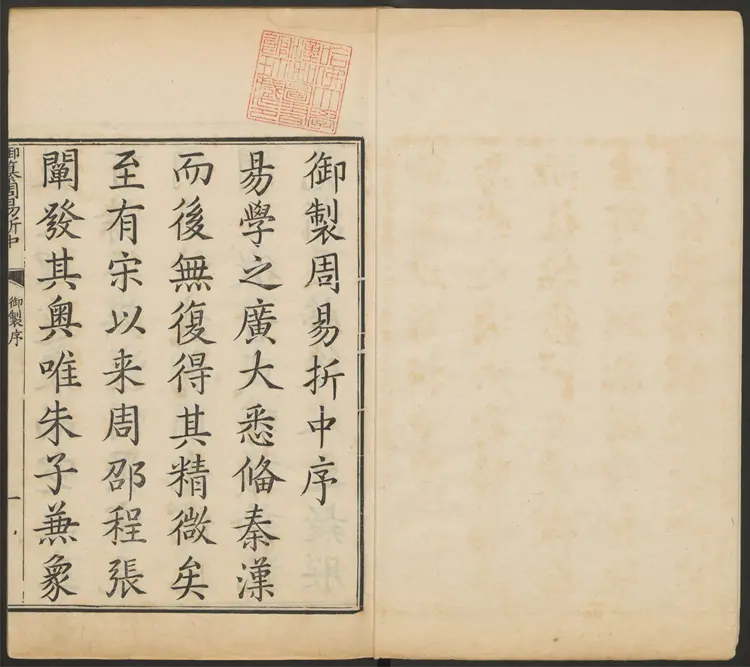 御製周易折中序
易學之廣大悉俻秦漢
而後無復得其精微矣
至有宋以来周邵程張
闡發其奥唯朱子蕪象
御纂周易折中
御製序
一